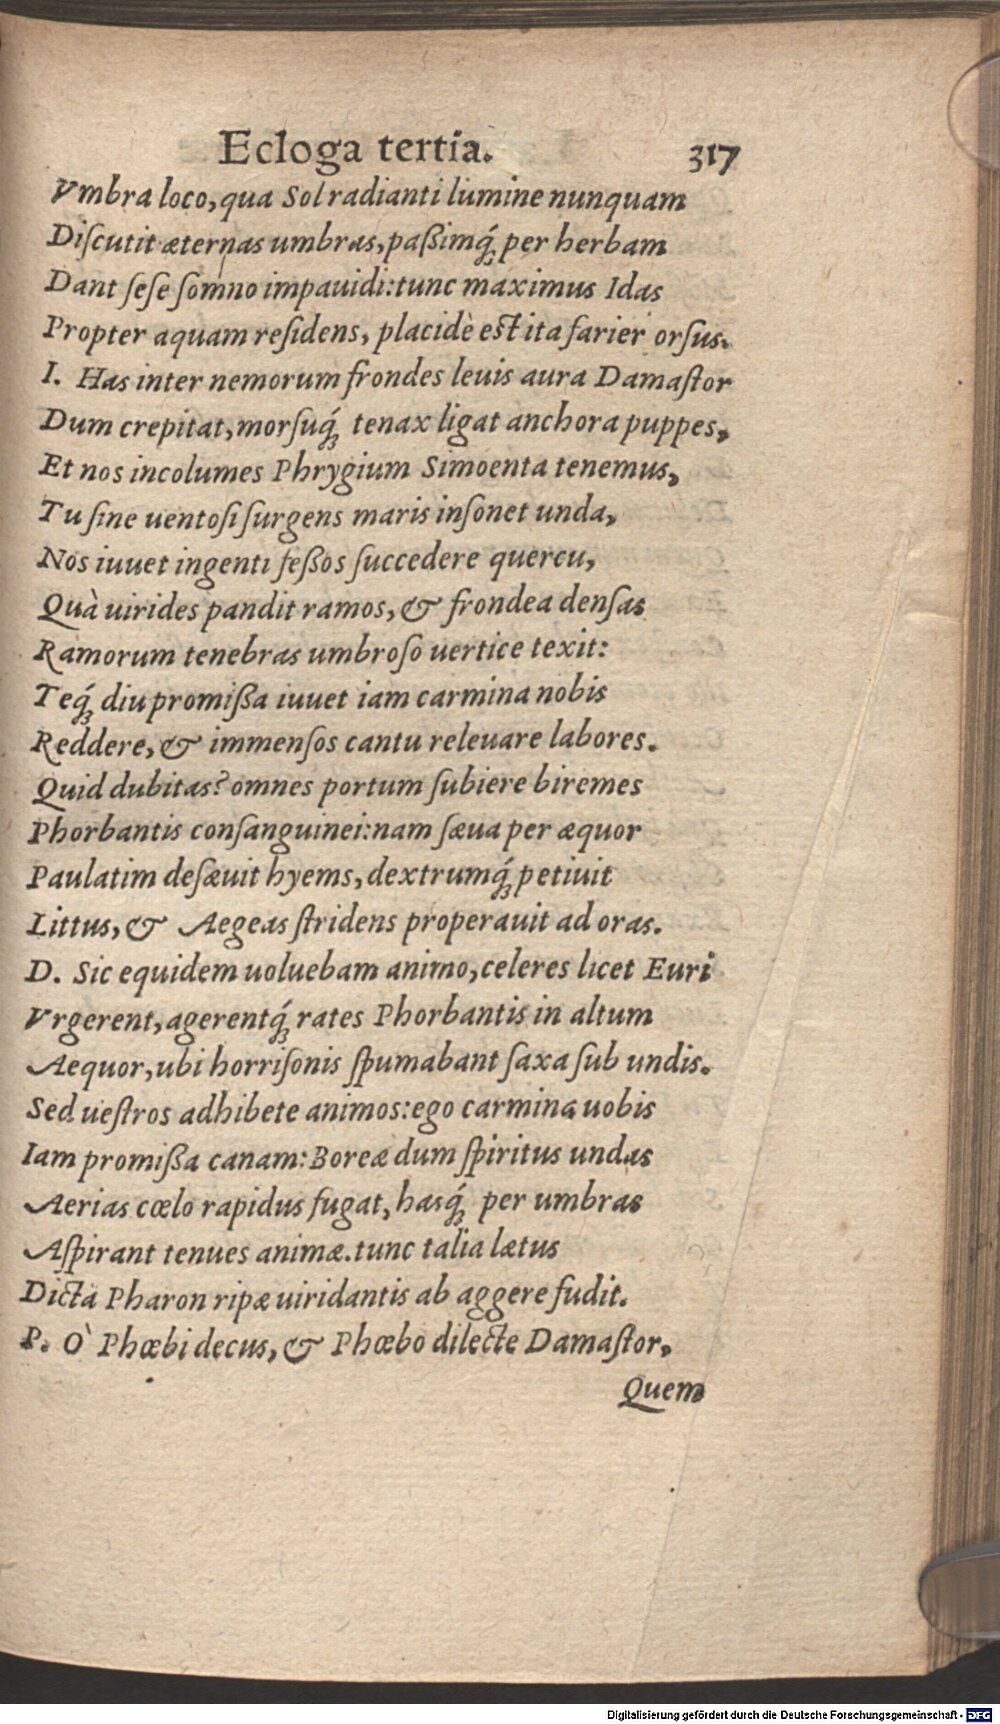 Ecloga tertia. 317
Vmbra loco, qua Sol radianti lumine nunquam
Diſcutit æternas umbras, paßimq́; per herbam
Dant ſeſe ſomno impauidi: tunc maximus Idas
Propter aquam reſidens, placidè eſt ita farier orſus.
I. Has inter nemorum frondes leuis aura Damaſtor
Dum crepitat, morſuq́; tenax ligat anchora puppes,
Et nos incolumes Phrygium Simoenta tenemus,
Tu ſine uentoſi ſurgens maris inſonet unda,
Nos iuuet ingenti feßos ſuccedere quercu,
Quà uirides pandit ramos, & frondea denſas
Ramorum tenebras umbroſo uertice texit:
Teq́; diu promißa iuuet iam carmina nobis
Reddere, & immenſos cantu releuare labores.
Quid dubitas? omnes portum ſubiere biremes
Phorbantis conſanguinei: nam ſæua per æquor
Paulatim deſæuit hyems, dextrumq́; petiuit
Littus, & Aegeas ſtridens properauit ad oras.
D. Sic equidem uoluebam animo, celeres licet Euri
Vrgerent, agerentq́; rates Phorbantis in altum
Aequor, ubi horriſonis ſpumabant ſaxa ſub undis.
Sed ueſtros adhibete animos: ego carmina uobis
Iam promißa canam: Boreæ dum ſpiritus undas
Aerias cœlo rapidus fugat, hasq́; per umbras
Aſpirant tenues animæ. tunc talia lætus
Dicta Pharon ripæ uiridantis ab aggere fudit.
P. O` Phœbi decus, & Phœbo dilecte Damaſtor,
Quem
Digitalisierung gefördert durch die Deutsche Forschungsgemeinschaft - DFG